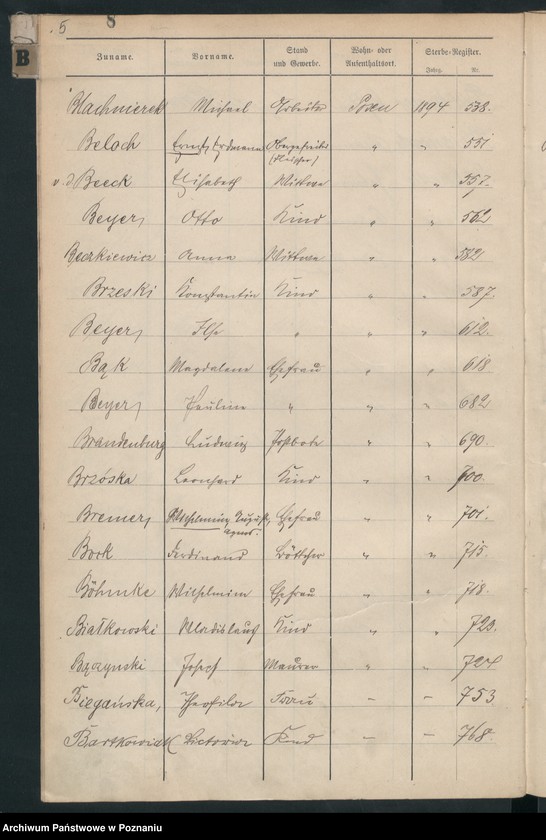 5 8
B
Zuname. Vorname. Stand und Gewerbe. Wohn- oder Aufenthaltsort. Sterbe-Register.
Jahrg. Nr.
Blachnierek Michael Arbeiter Posen 1894 538.
Beloch Ernst, Erdmann Obergefreiter " " 551
(Fleischer)
v. d. Beeck Elisabeth Wittwe " " 557
Beyer, Otto Kind " " 562
Beczkiewicz Anna Wittwe " " 582
Brzeski Konstantin Kind " " 587.
Beyer, Ilse " " " 612.
Bąk Magdalene Ehefrau " " 618
Beyer, Pauline " " " 682
Brandenburg Ludwig Postbote " " 690.
Brzóska Leonhard Kind " " 700.
Bremer, Wilhelmine Auguste Ehefrau " " 701.
Agnes.
Bork Ferdinand Böttcher " " 715.
Böhmke Wilhelmine Ehefrau " " 718.
Białkowski Wladislaus Kind " " 723.
Bączynski Josef Maurer " " 724
Biegańska, Theofilde Frau – – 753.
Bartkowiak Victoria Kind – – 768.
Archiwum Państwowe w Poznaniu